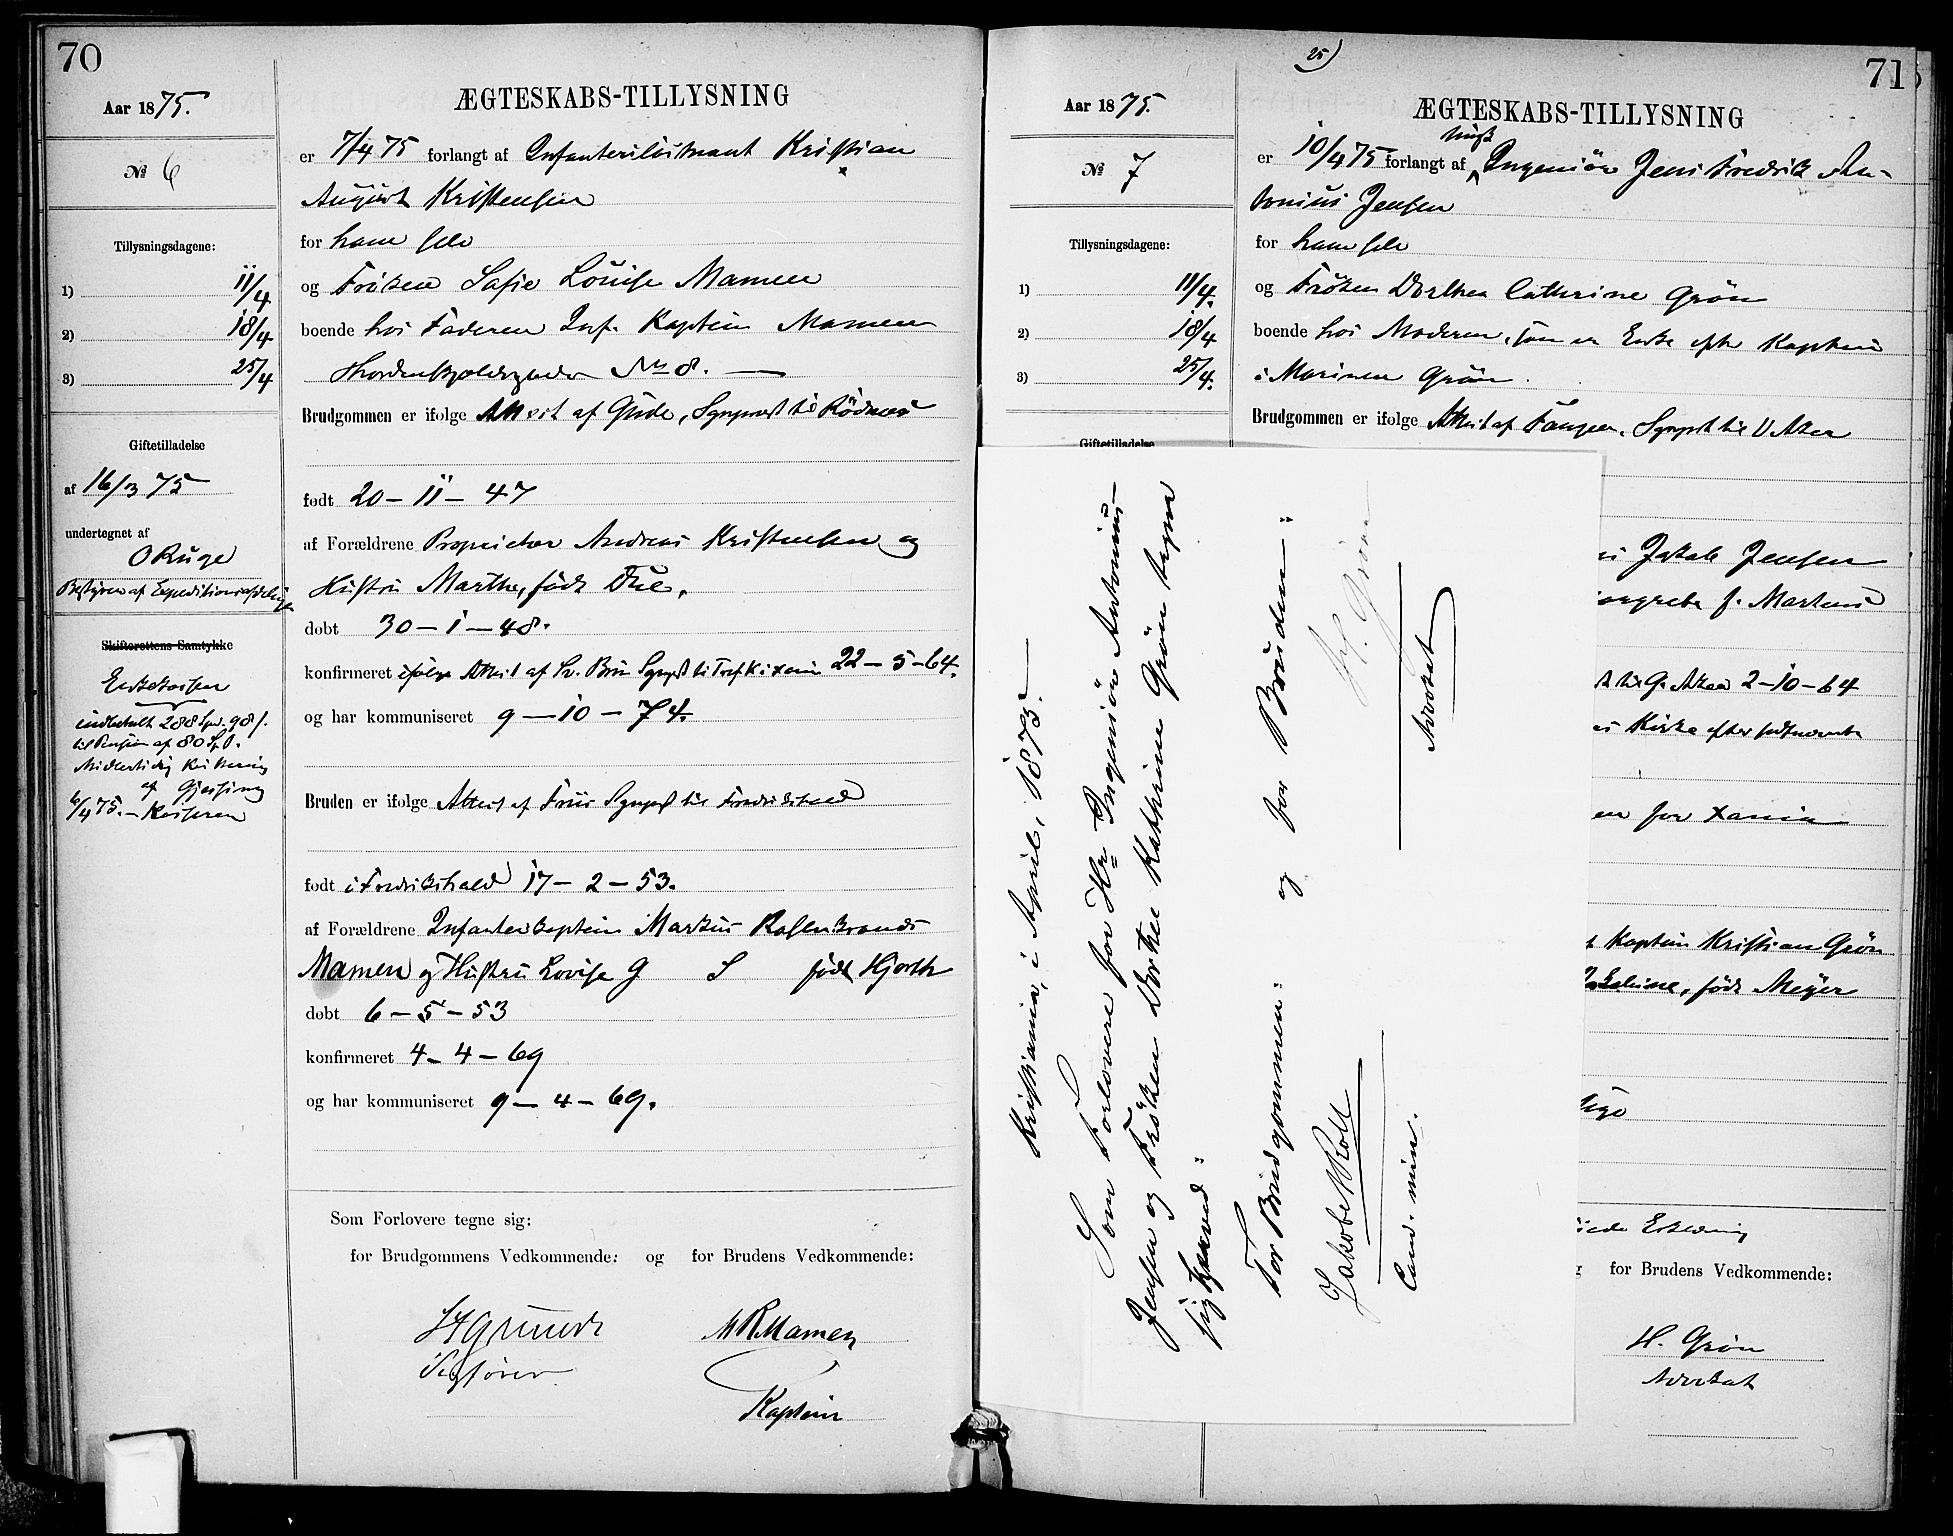 70
Aar 1875.
№ 6
Tillysningsdagene:
1) 11/4
2) 18/4
3) 25/4
Giftetilladelse
af 16/3 75
undertegnet af
O Ruge
Bestyrer af Expeditionsafdelingen
Skifterettens Samtykke
Enkekassen
indbetalt 288 Spd. 98 s.
til Pension af 80 Spd.
Midlertidig Kvittering
af Gjessing
6/4 75. Kasserer
ÆGTESKABS-TILLYSNING
er 7/4 75 forlangt af Infanteriløitnant Kristian
August Kristensen
for ham selv
og Frøken Sofie Lovise Mamen
boende hos Faderen Inf. Kaptein Mamen
Thordenskjoldsgaden No 8.
Brudgommen er ifølge Attest af Gude, Sgnprest til Rødenes
født 20 - 11 - 47
af Forældrene Proprietær Andreas Kristensen og
Hustru Marthe, født Due.
døbt 30 - 1 - 48.
konfirmeret ifølge Attest af Bru Sgnprest til Tref. K. i Xania 22 - 5 - 64.
og har kommuniseret 9 - 10 - 74.
Bruden er ifølge Attest af Friis Sgnprest til Fredrikshald
født i Fredrikshald 17 - 2 - 53.
af Forældrene Infanterikaptein Markus Rosenkrands
Mamen og Hustru Lovise G S født Hjorth
døbt 6 - 5 - 53
konfirmeret 4 - 4 - 69
og har kommuniseret 9 - 4 - 69.
Som Forlovere tegne sig:
for Brudgommens Vedkommende: og for Brudens Vedkommende:
MRMamen
Sagfører
Kaptein
25)
71
Aar 1875.
№ 7
Tillysningsdagene:
1) 11/4.
2) 18/4
3) 25/4.
Giftetilladelse
ÆGTESKABS-TILLYSNING
er 10/4 75 forlangt af Ingeniør Jens Fredrik An-
tonius Jensen
for ham selv
og Frøken Dorthea Cathrine Grøn
boende hos Moderen, som er Enke efter Kaptein
i Marinen Grøn.
Brudgommen er ifølge Attest af Fangen, Sgnprest til V. Aker
Jakob Jensen
f. Martens
til G. Aker 2-10-64
Kirke efter
en for Xania
Kaptein Kristian Grøn
født Meyer
Erklæring
for Brudens Vedkommende:
H. Grøn
Advokat
Kristiania, i April, 1875.
Som Forlovere for Hr Ingeniør Antonius
Jensen og Frøken Dorthea Kathrine Grøn tegne
sig herved:
For Brudgommen: og for Bruden:
Jakobe Roll
H. Grøn
Cand. min.
Advokat